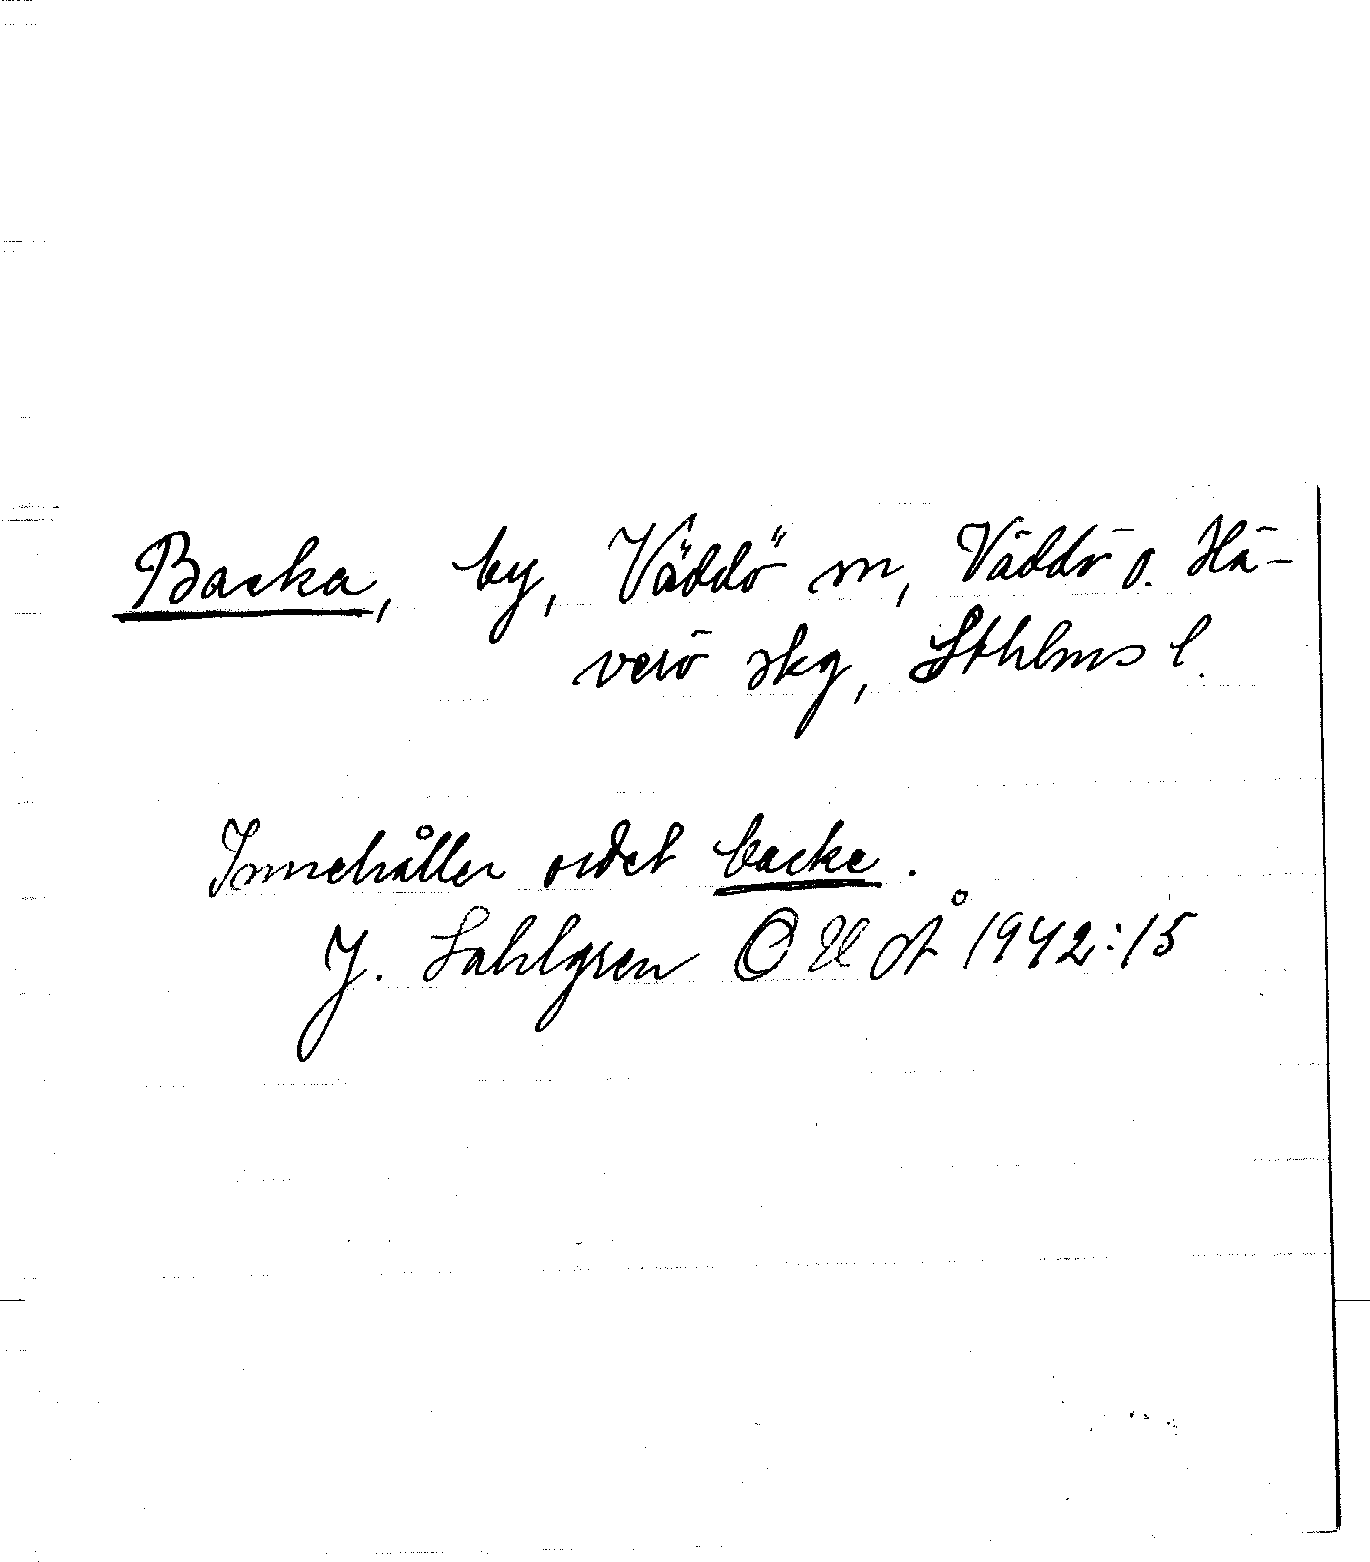 Backa, by, Väddö sn, Väddö o. Hä-
verö skg, Sthlms l.
Innehåller ordet backe.
J. Sahlgren OUÅ 1942:15